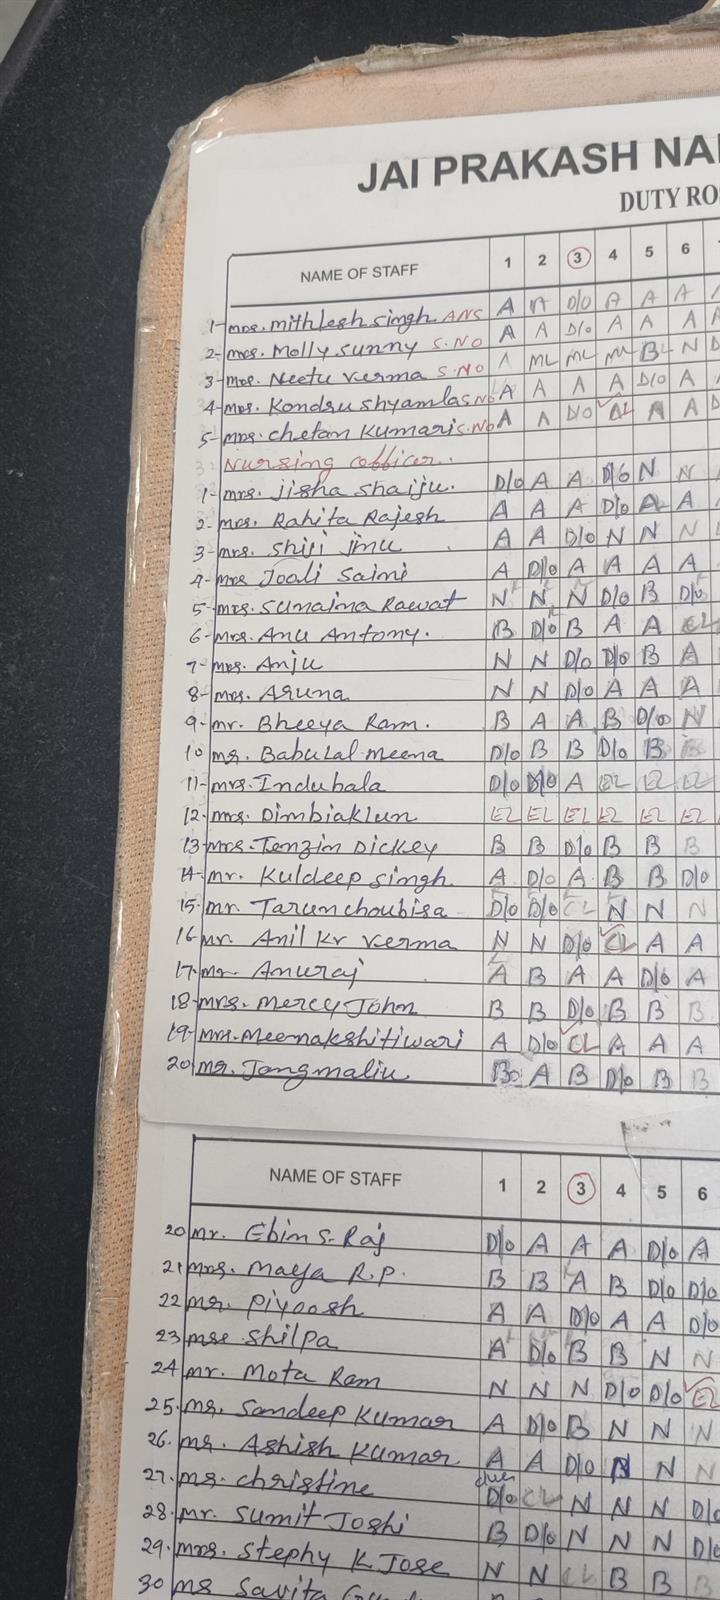 JAI PRAKASH NA
DUTY RO
NAME OF STAFF 1 2 3 4 5 6
1- mrs. mithlesh singh ANS A A D/O A A A
2- mrs. Molly sunny S.NO A A D/O A A A
3- mrs. Neetu verma S.NO A ML ML ML B N
4- mrs. Kondru shyamla S.NO A A A A D/O A
5- mrs. chetan kumari S.NO A A D/O A A
Nursing officer..
1- mrs. jisha shaiju. D/O A A D/O N N
2- mrs. Rahita Rajesh A A A D/O A A
3- mrs. shiji jinu A A D/O N N N
4- mrs Jooli Saini A D/O A A A A
5- mrs. sunaina Rawat N N N D/O B D/O
6- mrs. Anu Antony. B D/O B A A EL
7- mrs. Anju N N D/O D/O B A
8- mrs. Aruna N N D/O A A A
9- mr. Bheeya Ram. B A A B D/O N
10 mr. Babulal meena D/O B B D/O B B
11- mrs. Indubala D/O D/O A EL EL EL
12. mrs. Dimbiaklun EL EL EL EL EL EL
13 mrs. Tenzin Dickey B B D/O B B B
14- mr. Kuldeep singh A D/O A B B D/O
15- mr. Tarun choubisa D/O D/O CL N N N
16- mr. Anil Kr verma N N D/O CL A A
17- mr Anuraj A B A A D/O A
18- mrs. mercy John B B D/O B B B
19- mrs. meenakshi tiwari A D/O CL A A A
20 mr. Jangmaliu B A B D/O B B
NAME OF STAFF 1 2 3 4 5 6
20 mr. Ebin S. Raj D/O A A A D/O A
21 mrs. maya R.P. B B A B D/O D/O
22 mr. piyoosh A A D/O A A D/O
23 shilpa A D/O B B N N
24 mr. mota Ram N N N D/O D/O EL
25. mr. Sandeep kumar A D/O B N N N
26. mr. Ashish kumar A A D/O N N
27. ms. christine D/O CL N N N D/O
28. mr. sumit Joshi B D/O N N N D/O
29. mrs. stephy K Jose N N CL B B B
30 ms Savita